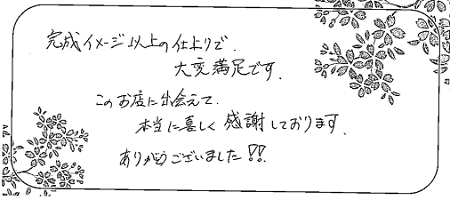 完成イメージ以上の仕上りで、
大変満足です。
このお店に出会えて、
本当に喜しく感謝しております。
ありがとうございました!!